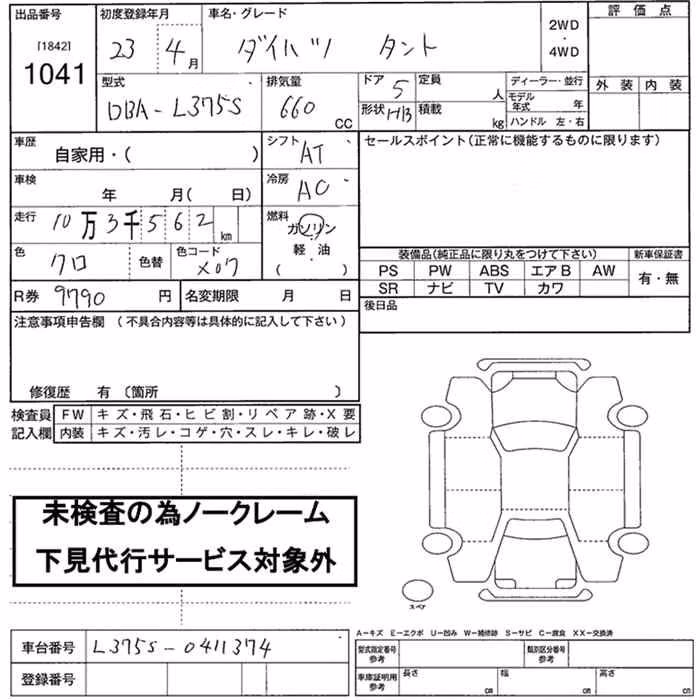 出品番号 初度登録年月 車名・グレード 評価点
[1842] 23 4月 ダイハツ タント 2WD・4WD
1041
型式 排気量 ドア 5 定員 人 ディーラー・並行 外装 内装
DBA-L375S 660 CC 形状 H/B 積載 kg モデル年式 年
ハンドル 左・右
車歴 シフト AT セールスポイント(正常に機能するものに限ります)
自家用・( )
車検 年 月( 日) 冷房 AC
走行 10万3千562km 燃料 ガソリン
軽油
( )
色 クロ 色替 色コード X07
装備品(純正品に限り丸をつけて下さい) 新車保証書
PS PW ABS エアB AW 有・無
SR ナビ TV カワ
R券 9790円 名変期限 月 日 後日品
注意事項申告欄 (不具合内容等は具体的に記入して下さい)
修復歴 有 (箇所 )
検査員 FW キズ・飛石・ヒビ割・リペア跡・X要
記入欄 内装 キズ・汚レ・コゲ・穴・スレ・キレ・破レ
未検査の為ノークレーム
下見代行サービス対象外
スペア
A-キズ E-エクボ U-凹み W-補修跡 S-サビ C-腐食 XX-交換済
車台番号 L375S-0411374 型式指定番号参考 類別区分番号参考
登録番号 車庫証明用参考 長さ cm 幅 cm 高さ cm